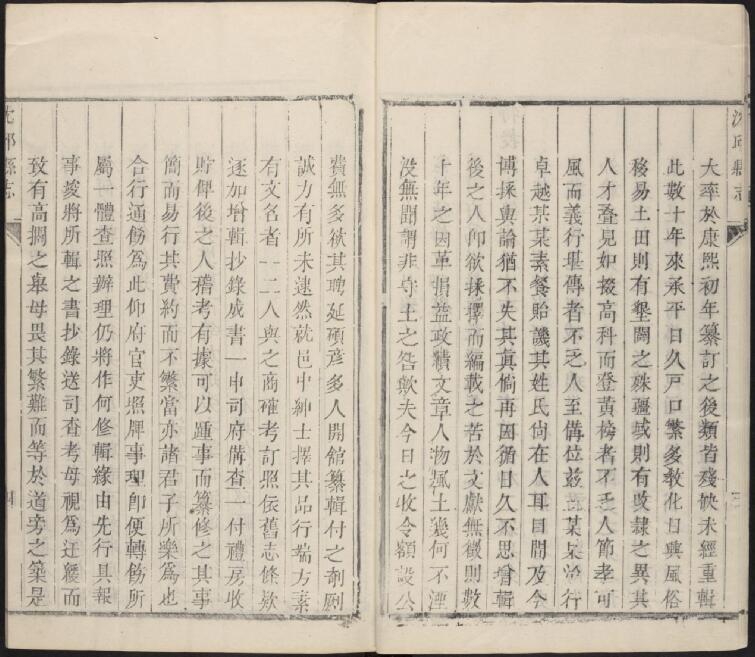 沈邱縣志
三
大率於康熙初年纂訂之後類皆殘缺未經重輯
此數十年來承平日久戸口繁多敎化日興風俗
移易土田則有墾闢之殊疆域則有改隷之異其
人才疊見如掇高科而登黃榜者不乏人節孝可
風而義行堪傳者不乏人至備位茲土某某洽行
卓越某某素餐貽譏其姓氏尙在人耳目間及今
博採輿論猶不失其真倘再因循日久不思增輯
後之人卽欲採擇而編載之苦於文獻無徵則數
十年之因革損益政績文章人物風土幾何不湮
沒無聞謂非守土之咎歟夫今日之收令額設公
費無多欲其聘延碩彥多人開館纂輯付之剞劂
誠力有所未逮然就邑中紳士擇其品行端方素
有文名者一二人與之商確考訂照依舊志條欵
逐加增輯抄錄成書一申司府備查一付禮房收
貯俾後之人稽考有據可以踵事而纂修之其事
簡而易行其費約而不繁當亦諸君子所樂爲也
合行通飭爲此仰府官吏照牌事理卽便轉飭所
屬一體查照辦理仍將作何修輯緣由先行具報
事竣將所輯之書抄錄送司查考毋視爲迂緩而
致有高擱之舉毋畏其繁難而等於道旁之築是
沈邱縣志
四